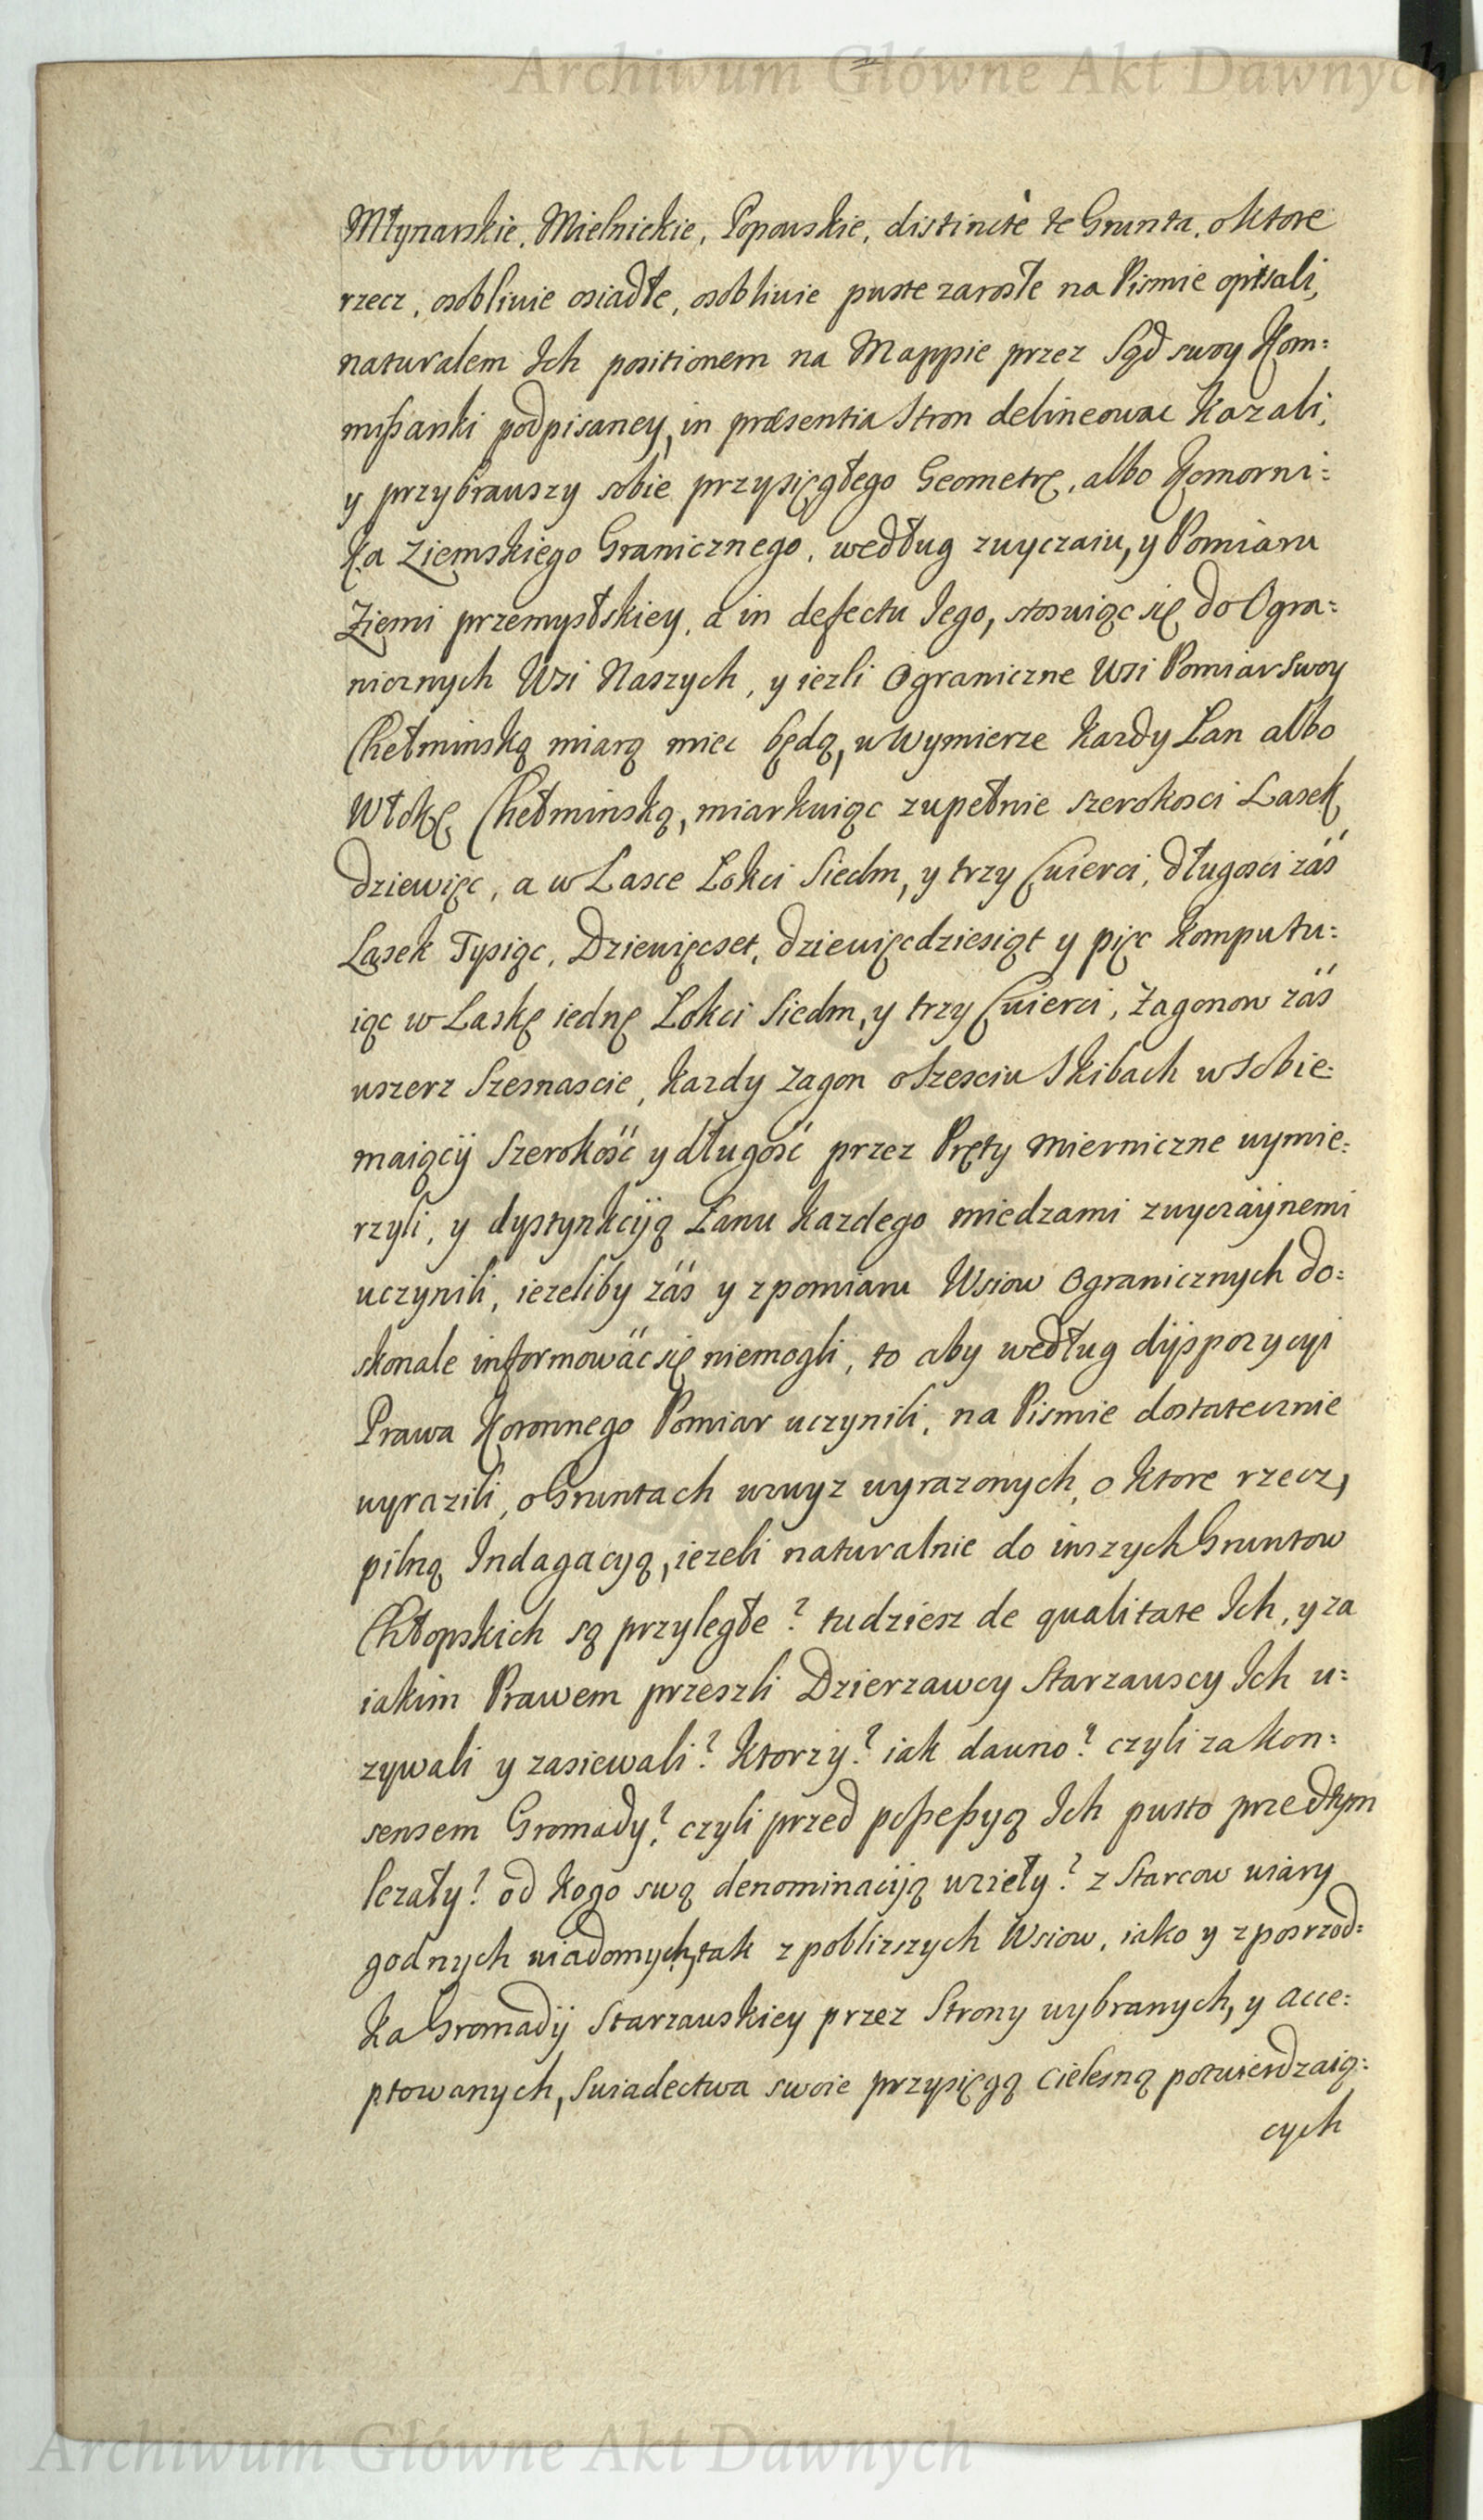 Archiwum Główne Akt Dawnych
Młynarskie, Mielnickie, Popowskie, distinctè te Grunta, o ktore
rzecz, osobliwie osiadłe, osobliwie puste zarosłe na Pismie opisali,
naturalem Ich positionem na Mappie przez Sąd swoy Kom=
mißarski podpisaney, in præsentia Stron delineowac kazali,
y przybrawszy sobie przysięgłego Geometrę, albo Komorni=
ka Ziemskiego Granicznego, według zwyczaiu, y Pomiaru
Ziemi przemysłskiey, a in defectu Iego, stosuiąc się do Ogra=
nicznych Wsi Naszych, y iezli Ograniczne Wsi Pomiar Swoy
Chełminską miarą miec będą, w Wymierze kazdy Łan albo
Włokę Chełminską, miarkuiąc zupełnie szerokosci Lasek
dziewięc, a w Lasce Łokci Siedm, y trzy Cwierci, długosci záś
Lasek Tysiąc, Dziewięcset, dziewięcdziesiąt y pięc komputu=
iąc w Laskę iednę Łokci Siedm, y trzy Cwierci, Zagonow záś
wszerz Szesnascie, kazdy zagon o Szesciu Skibach w sobie
maiącÿ Szerokość y długość przez Pręty Miernicze wymie=
rzyli, y dystynkcyą Łanu kazdego miedzami zwyczaÿnemi
uczynili, iezeliby záś y z pomiaru Wsiow Ogranicznych do=
skonale informowác się niemogli, to aby według dÿspozycyi
Prawa Koronnego Pomiar uczynili, na Pismie dostatecznie
wyrazili, o Gruntach wzwyz wyrazonych, o ktore rzecz,
pilną Indagacyą, iezeli naturalnie do inszych Gruntow
Chłopskich są przyległe? tudziesz de qualitate Ich, y za
iakim Prawem przeszli Dzierzawcy Starzawscy Ich u=
zywali y zasiewali? Ktorzy? iak dawno? czyli za kon=
sensem Gromady? czyli przed poßeßyą Ich pusto przedtym
lezały? od kogo swą denominacÿą wzieły? z Starcow wiary
godnych wiadomych, tak z poblizszych Wsiow, iako y z posrzod=
ka Gromadÿ Starzawskiey przez Strony wybranych, y acce=
ptowanych, Swiadectwa swoie przysięgą cielesną potwierdzaią=
cych
Archiwum Główne Akt Dawnych